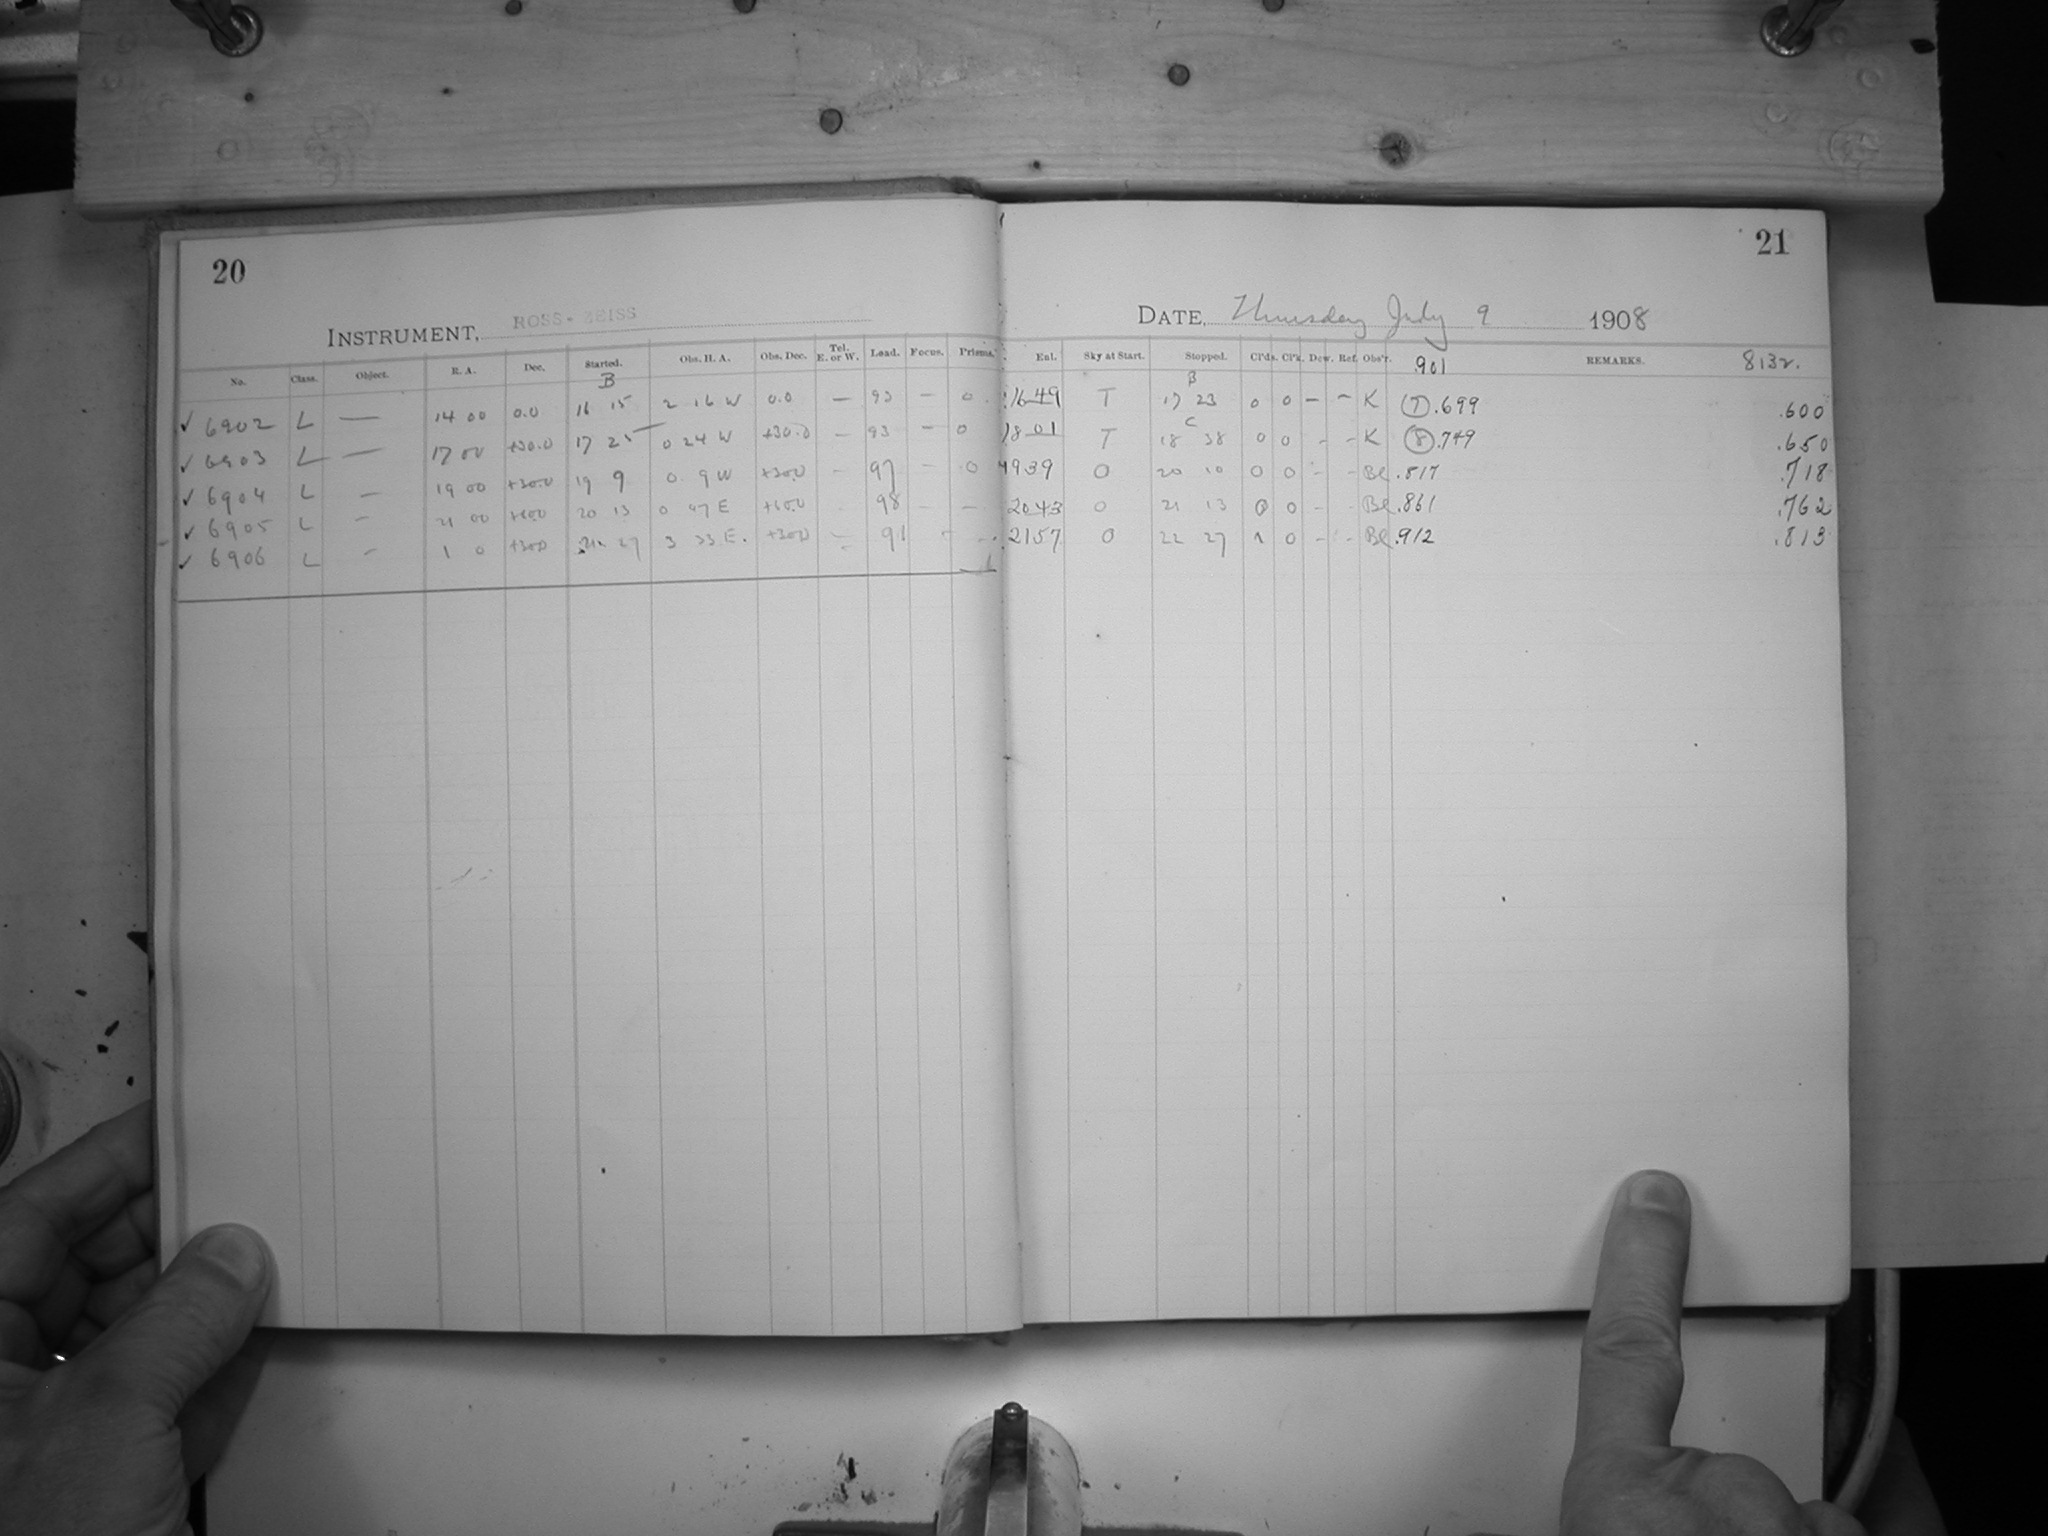 20
21
INSTRUMENT, ROSS-ZEISS
DATE, Thursday July 9 1908
No. Class. Object. R. A. Dec. Started. Obs. H. A. Obs. Dec. Tel. E. or W. Load. Focus. Prisms. Ent. Sky at Start. Stopped. Cl'ds. Cl'k. Dew. Ref. Obs'r. .901 REMARKS. 8132.
B B
✓ 6902 L — 14 00 0.0 16 15 2 16 W 0.0 — 93 — 0 1649 T 17 23 0 0 — — K (7) .699 .600
C
✓ 6903 L — 17 00 +30.0 17 25 0 24 W +30.0 — 93 — 0 1801 T 18 38 0 0 - - K (8) .749 .650
✓ 6904 L — 19 00 +30.0 19 9 0 9 W +30.0 - 97 - 0 1939 0 20 10 0 0 - - Bl .817 .718
✓ 6905 L — 21 00 +60.0 20 13 0 47 E +60.0 98 - - 2043 0 21 13 0 0 - - Bl .861 .762
✓ 6906 L — 1 0 +30.0 21 27 3 33 E. +30.0 - 91 - - 2157 0 22 27 1 0 - - Bl .912 .813